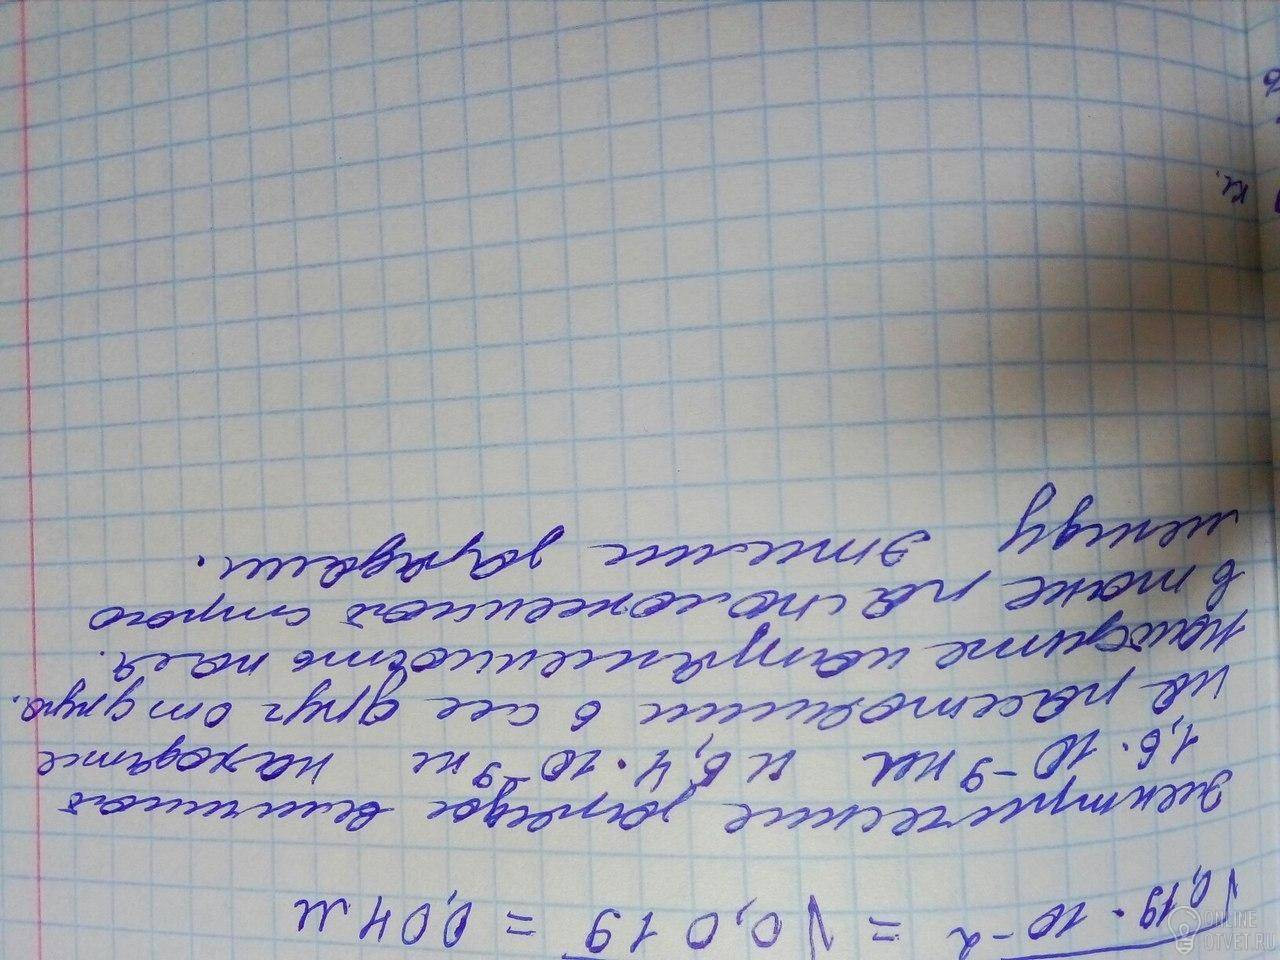 √0,19 · 10 -2 = √0,019 = 0,04 м
Электрические заряды величиной
1,6 · 10 -9 кл и 6,4 · 10 -9 кл находятся
на расстоянии 6 см друг от друга.
Найдите напряженность поля.
в точке расположенной строго
между этими зарядами.
кл.
ONLINE
OTVET.RU